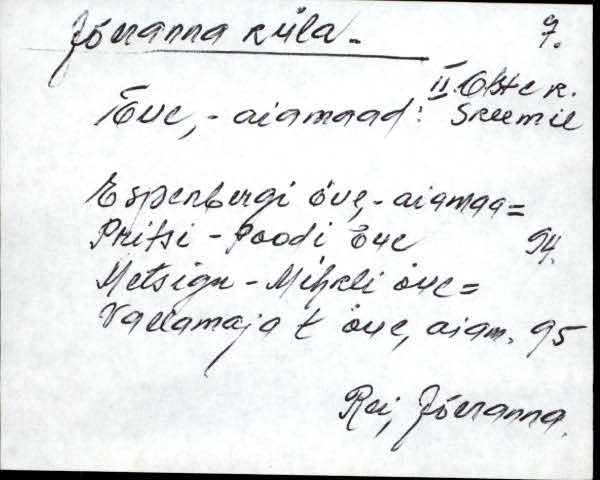 Jõeranna küla. 7.
II Otste k.
Õue, - aiamaad: Skeemil
Espenbergi õue, - aiamaa =
Pritsi - Poodi Õue 94.
Metsigu - Mihkli õue =
Vallamaja t õue, aiam. 95
Rei, Jõeranna.